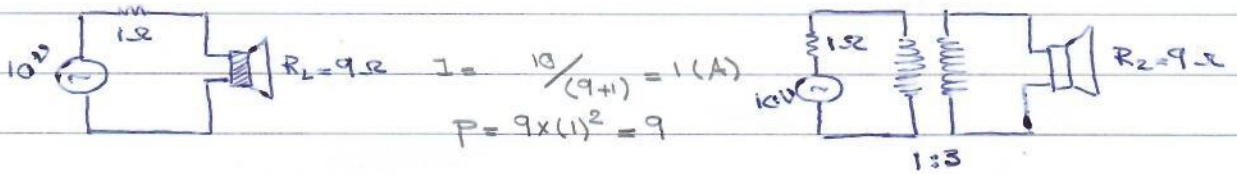 1Ω
10v
R_L=9Ω
I = 10/(9+1) = 1(A)
P = 9×(1)² = 9
1Ω
10V
R_2=9Ω
1:3